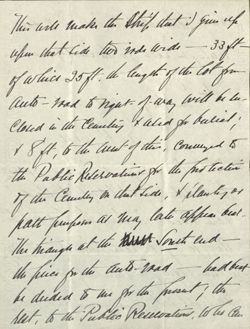 This will makes the strip that I give up
upon that side two rods wide — 33 ft
of which 25 ft. the length of the lot from
auto-road to right-of-way, will be in-
closed in the Cemetery & used for burial;
& 8 ft, to the west of this, conveyed to
the Public Reservations for the protection
of the Cemetery on that side, & planting or
path purposes as may later appear best.
The triangle at the South end —
the piece for the auto-road — had best
be deeded to me for the present; the
rest, to the Public Reservation, to be